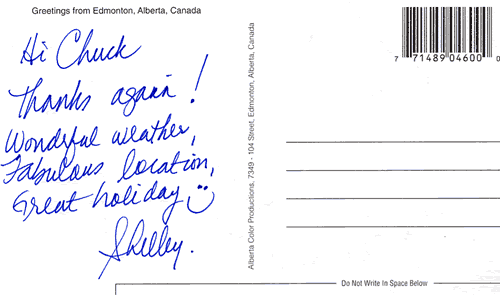 Greetings from Edmonton, Alberta, Canada
Hi Chuck
Thanks again!
Wonderful weather,
Fabulous location,
Great holiday
Shelley.
Alberta Color Productions, 7349 - 104 Street, Edmonton, Alberta, Canada
7 71489 04600 0
Do Not Write In Space Below